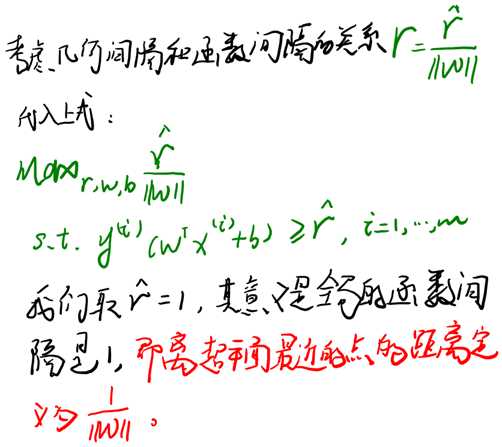 考虑几何间隔和函数间隔的关系 r = \hat{r} / ||w||
代入上式:
Max_{r,w,b} \hat{r} / ||w||
s.t. y^{(i)} (w^T x^{(i)} + b) ≥ \hat{r}, i=1,…,m
我们取 \hat{r} = 1, 其意义是全局的函数间
隔是1, 即离超平面最近的点的距离定
义为 1 / ||w|| 。